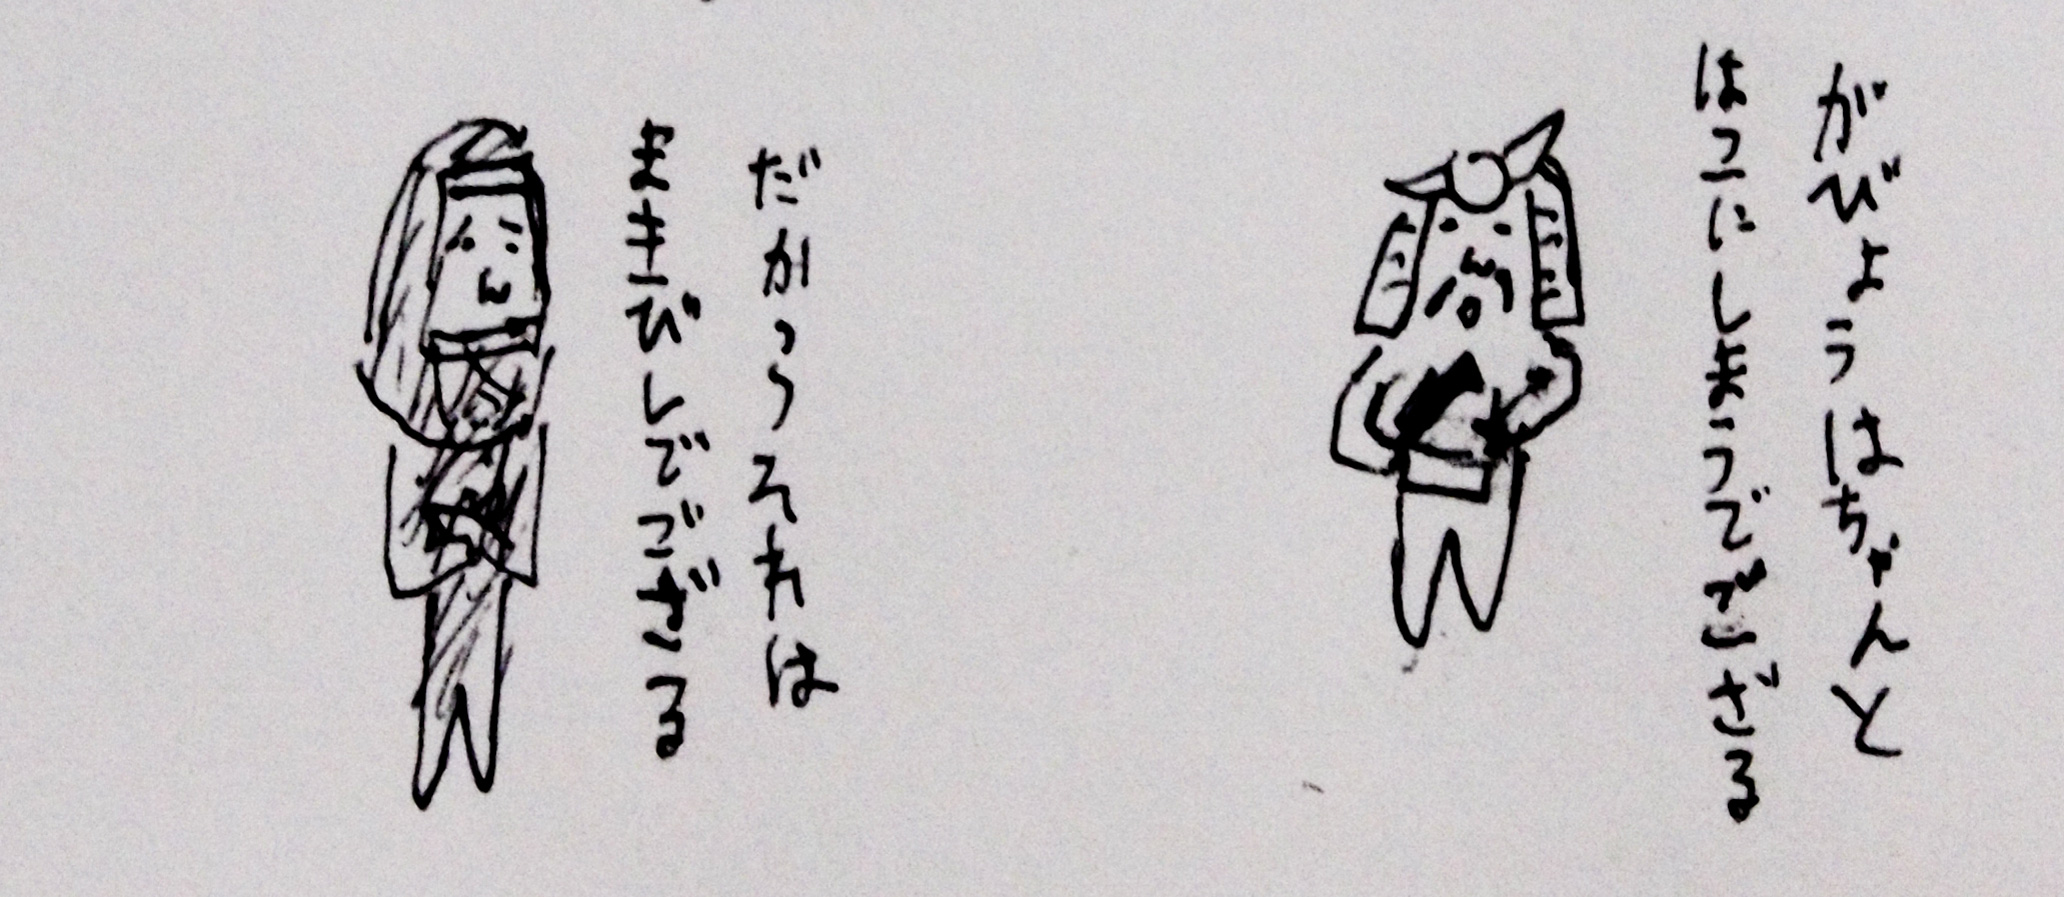 がびょうはちゃんと
はこにしまうでござる
だからそれは
まきびしでござる